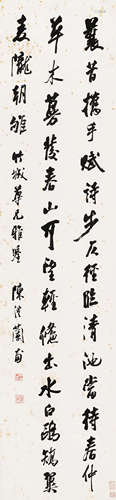 曩昔攜手賦詩步仄徑臨清池當待春仲
草木蔓發春山可望輕鯈出水白鷗矯翼
麥隴朝雊 竹兄雅鑒 陳澧蘭甫